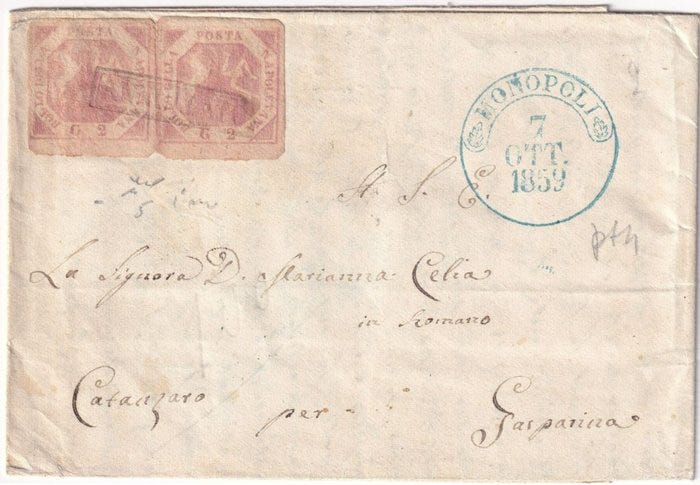 POSTA POSTA
G. 2 G. 2
MONOPOLI
7
OTT.
1859
A. S. E.
La Signora D. Marianna Celia
in Romano
Catanzaro per Gasparina